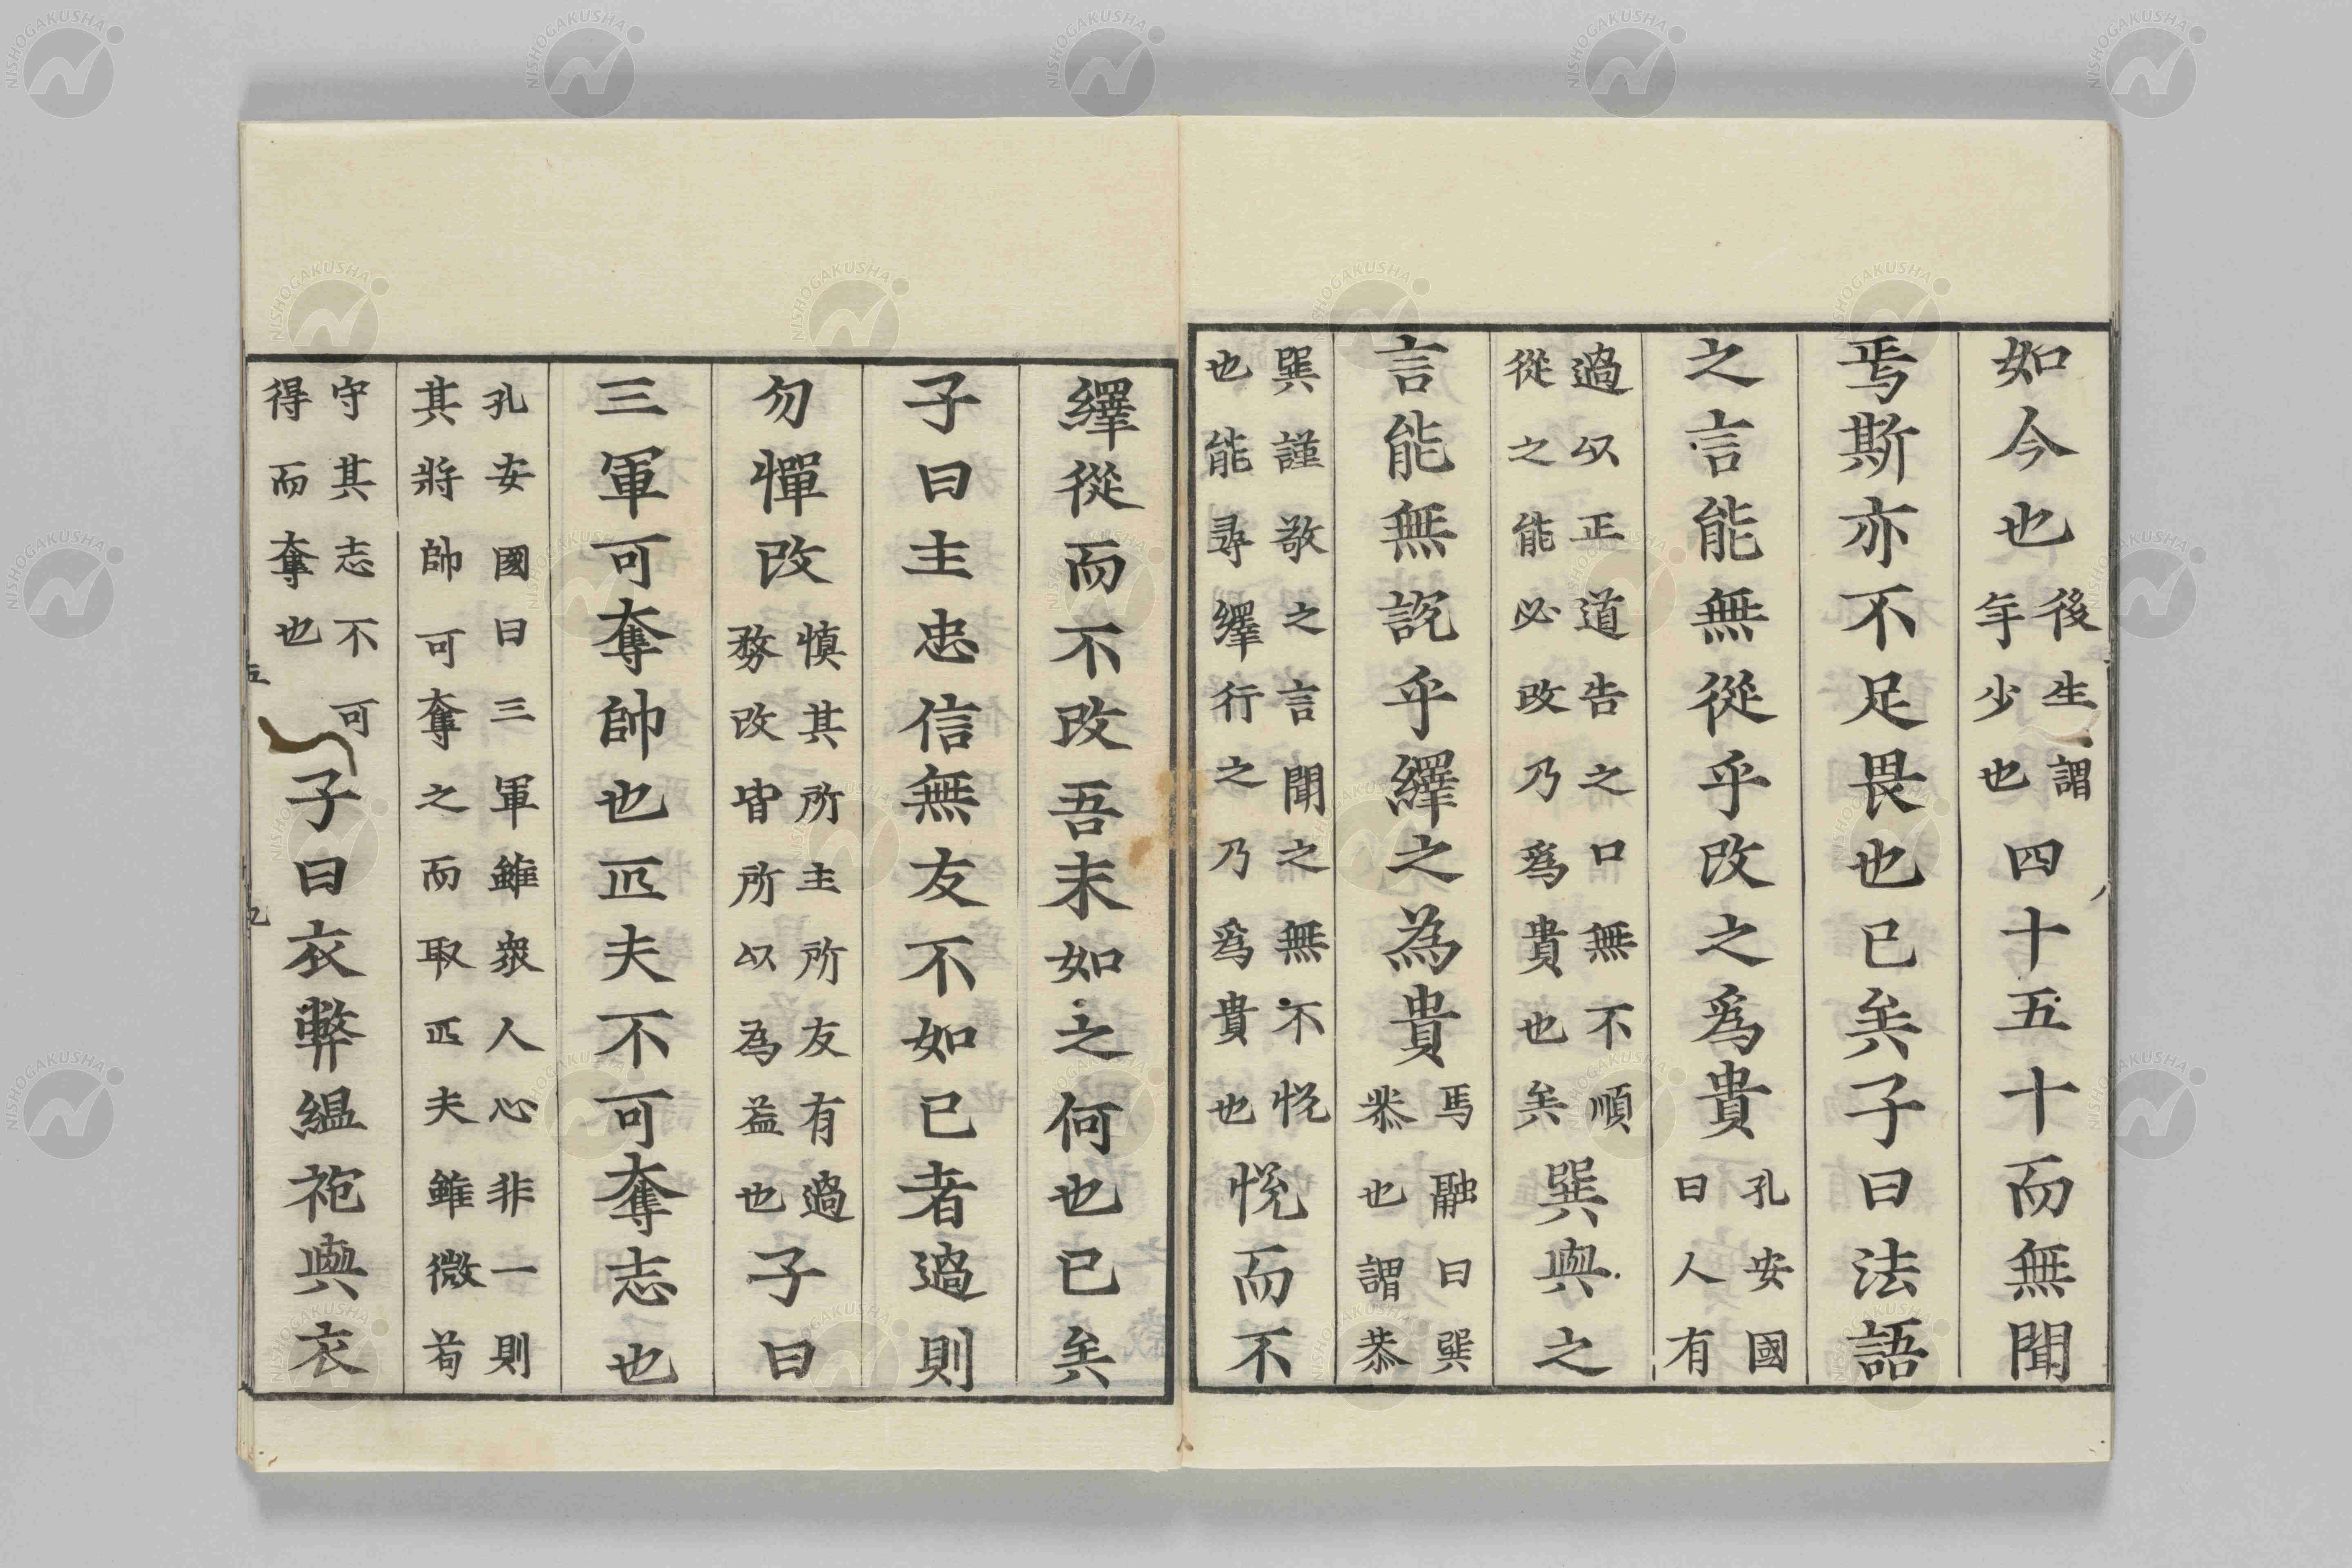 如今也後生謂年少也四十五十而無聞
焉斯亦不足畏也已矣子曰法語
之言能無從乎改之爲貴孔安國曰人有
過以正道告之口無不順從之能必改乃爲貴也矣巽與之
言能無說乎繹之為貴馬融曰巽恭也謂恭
巽謹敬之言聞之無不悅也能尋繹行之乃爲貴也悅而不
繹從而不改吾末如之何也已矣
子曰主忠信無友不如己者過則
勿憚改慎其所主所友有過務改皆所以為益也子曰
三軍可奪帥也匹夫不可奪志也
孔安國曰三軍雖衆人心非一則其將帥可奪之而取匹夫雖微苟
守其志不可得而奪也子曰衣弊縕袍與衣
NISHOGAKUSHA